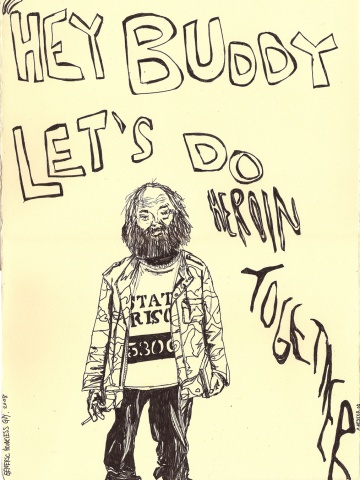 HEY BUDDY
LET'S DO
HEROIN
TOGETHER
STAT
RISO
5306
GENERIC HOMELESS GUY, 2008